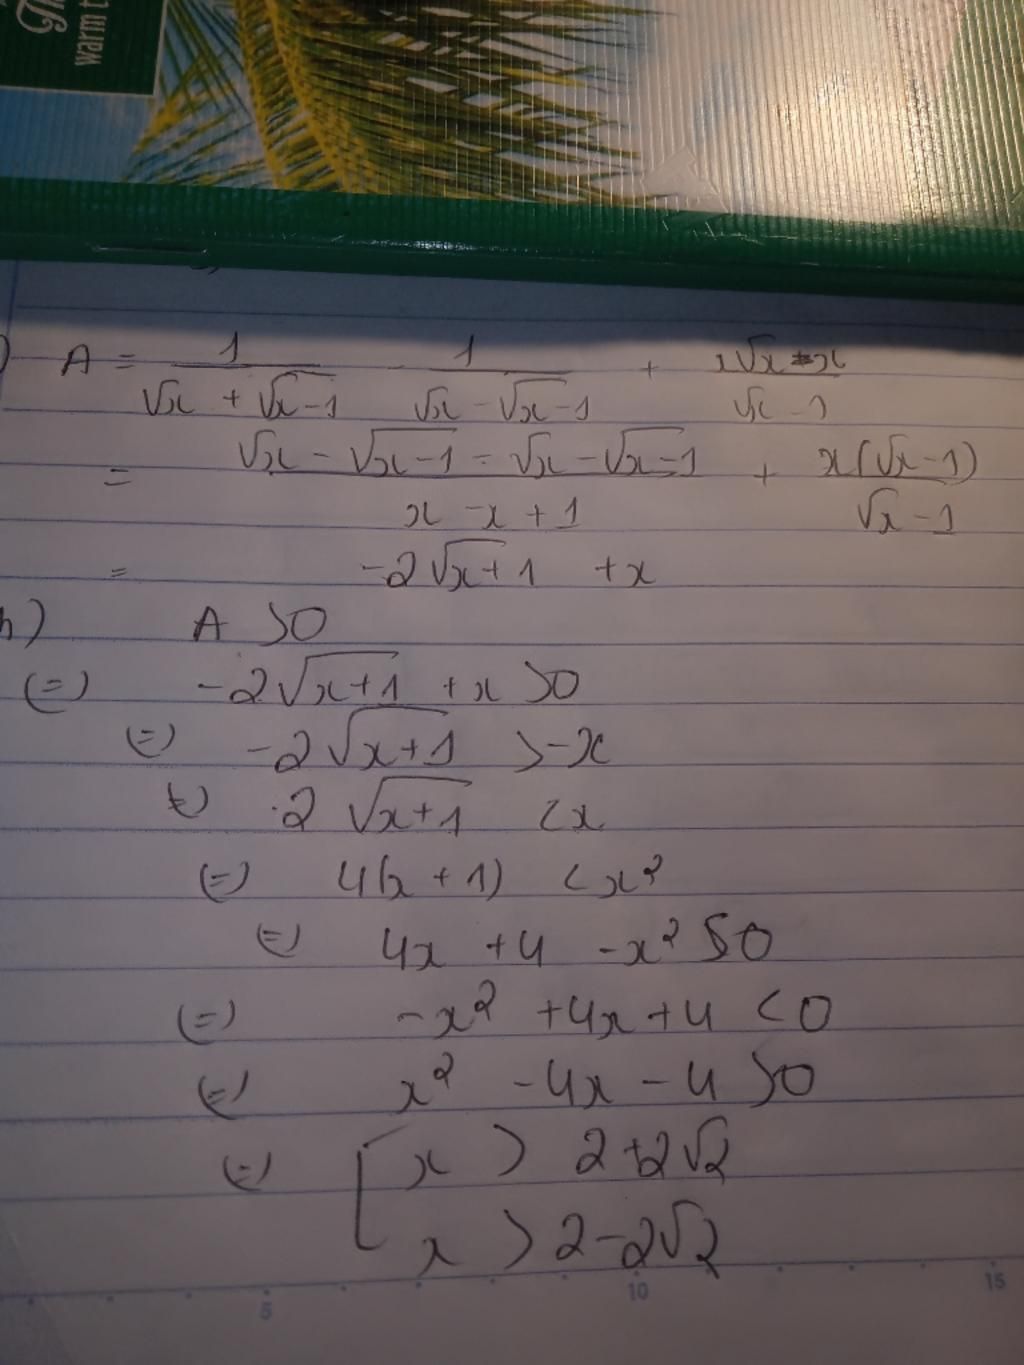 Th
warm t
) A = 1/(√x + √x-1) - 1/(√x - √x-1) + (x√x - x)/(√x - 1)
= (√x - √x-1 - √x - √x-1)/(x - x + 1) + x(√x - 1)/(√x - 1)
= -2√x+1 + x
h) A >0
(=) -2√x+1 + x >0
(=) -2√x+1 > -x
(=) 2√x+1 < x
(=) 4(x + 1) < x²
(=) 4x + 4 - x² < 0
(=) -x² + 4x + 4 < 0
(=) x² - 4x - 4 > 0
(=) [ x > 2 + 2√2
x > 2 - 2√2
5 10 15